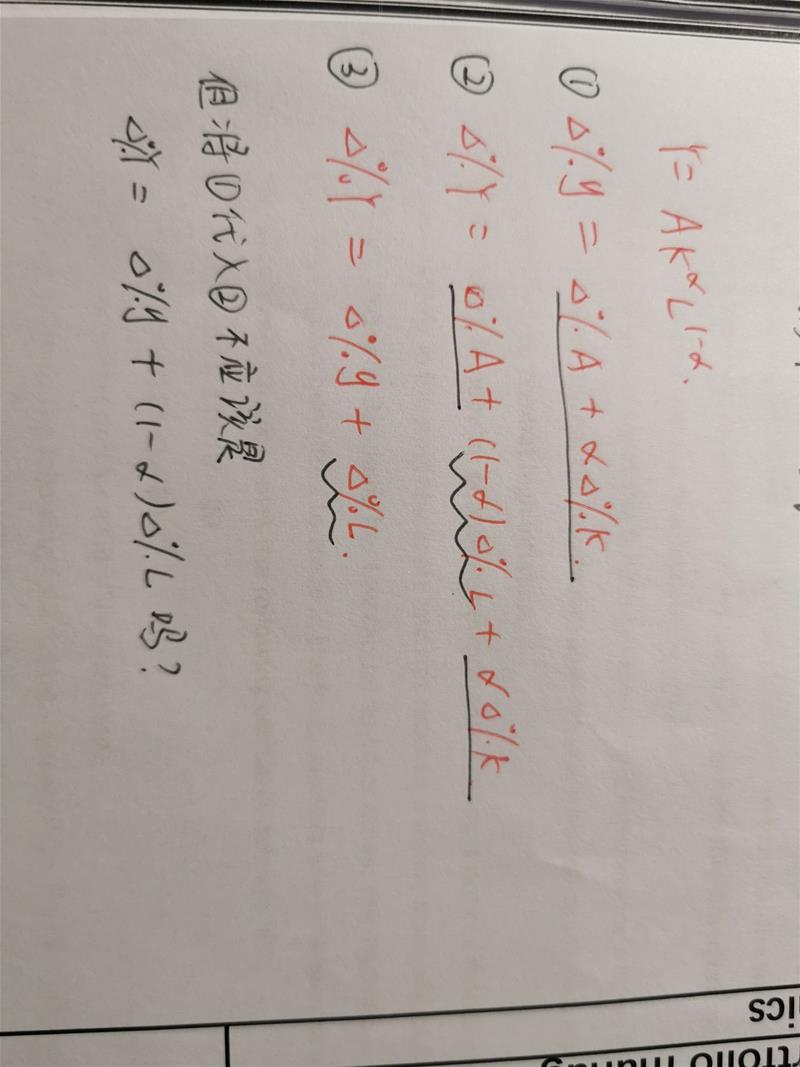 Y = AK^α L^(1-α).
① Δ%y = Δ%A + αΔ%k.
② Δ%Y = Δ%A + (1-α)Δ%L + αΔ%K
③ Δ%Y = Δ%y + Δ%L.
但将①代入②不应该是
Δ%Y = Δ%y + (1-α)Δ%L 吗?
ics
rtfolio manag